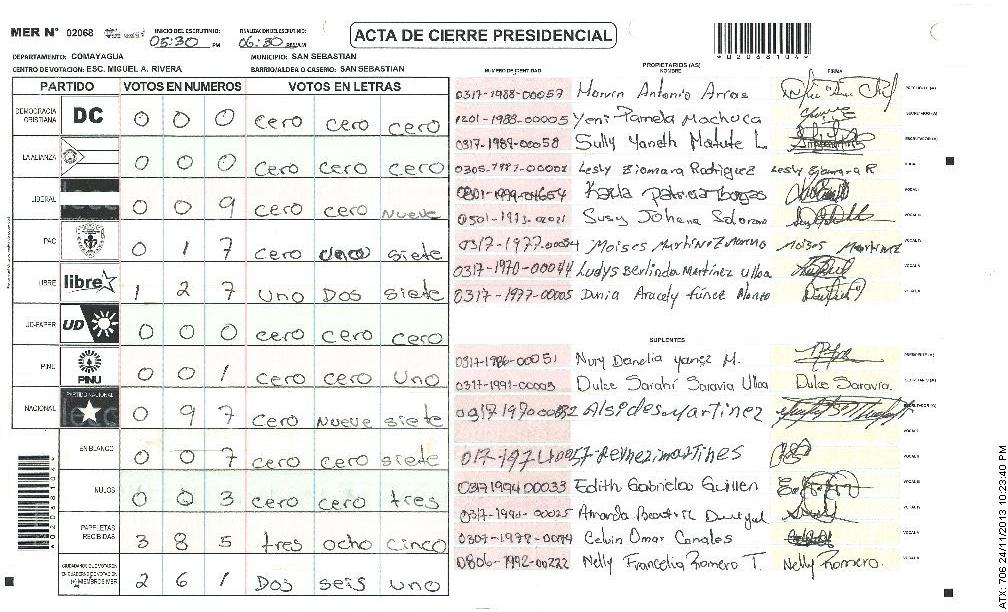 MER N° 02068 INICIO DEL ESCRUTINIO: 05:30 PM FINALIZACION ESCRUTINIO: 06:30
ACTA DE CIERRE PRESIDENCIAL
*02068104*
DEPARTAMENTO: COMAYAGUA MUNICIPIO: SAN SEBASTIAN
CENTRO DE VOTACION: ESC. MIGUEL A. RIVERA BARRIO/ALDEA O CASERIO: SAN SEBASTIAN
PARTIDO VOTOS EN NUMEROS VOTOS EN LETRAS
DEMOCRACIA CRISTIANA DC 0 0 0 cero cero cero
LA ALIANZA 0 0 0 cero cero cero
LIBERAL 0 0 9 cero cero nueve
PAC 0 1 7 cero unco siete
LIBRE libre 1 2 7 uno Dos siete
UD-FAPER UD 0 0 0 cero cero cero
PINU PINU 0 0 1 cero cero uno
NACIONAL PARTIDO NACIONAL 0 9 7 cero nueve siete
EN BLANCO 0 0 7 cero cero siete
NULOS 0 0 3 cero cero tres
PAPELETAS RECIBIDAS 3 8 5 tres ocho cinco
CIUDADANOS QUE VOTARON EN CUADERNO DE VOTACION (+) MIEMBROS MER 2 6 1 Dos seis uno
*02068104*
NUMERO DE IDENTIDAD PROPIETARIOS (AS) NOMBRE FIRMA
0317-1988-00057 Marvin Antonio Arras PRESIDENTE (A)
1201-1988-00005 Yeni Pamela Machuca SECRETARIO (A)
0317-1989-00058 Sully Yaneth Matute L. ESCRUTADOR (A)
Lesly Xiomara Rodriguez Lesly Xiomara R VOCAL I
0801-1979-04654 Karla Patricia Borjas VOCAL II
0501-1973-02021 Susy Johana Solorzano VOCAL III
0317-1977-00054 Moises Martinez Moreno Moises Martinez VOCAL IV
0317-1970-00044 Ludys Berlinda Martinez ulloa VOCAL V
0317-1977-00005 Dunia Aracely Funez Alonzo
SUPLENTES
0317-1986-00051 Nury Danelia yanez M. PRESIDENTE (A)
0317-1991-00005 Dulce Sarahí Saravia Ulloa Dulce Saravia. SECRETARIO (A)
Alsides Martinez ESCRUTADOR (A)
Reynezi martines
Edith Gabriela Guillen
Amanda
Celvin Omar Canales
0806-1992-00222 Nelly Francelia Romero T. Nelly Romero.
ATX: 706 24/11/2013 10:23:40 PM